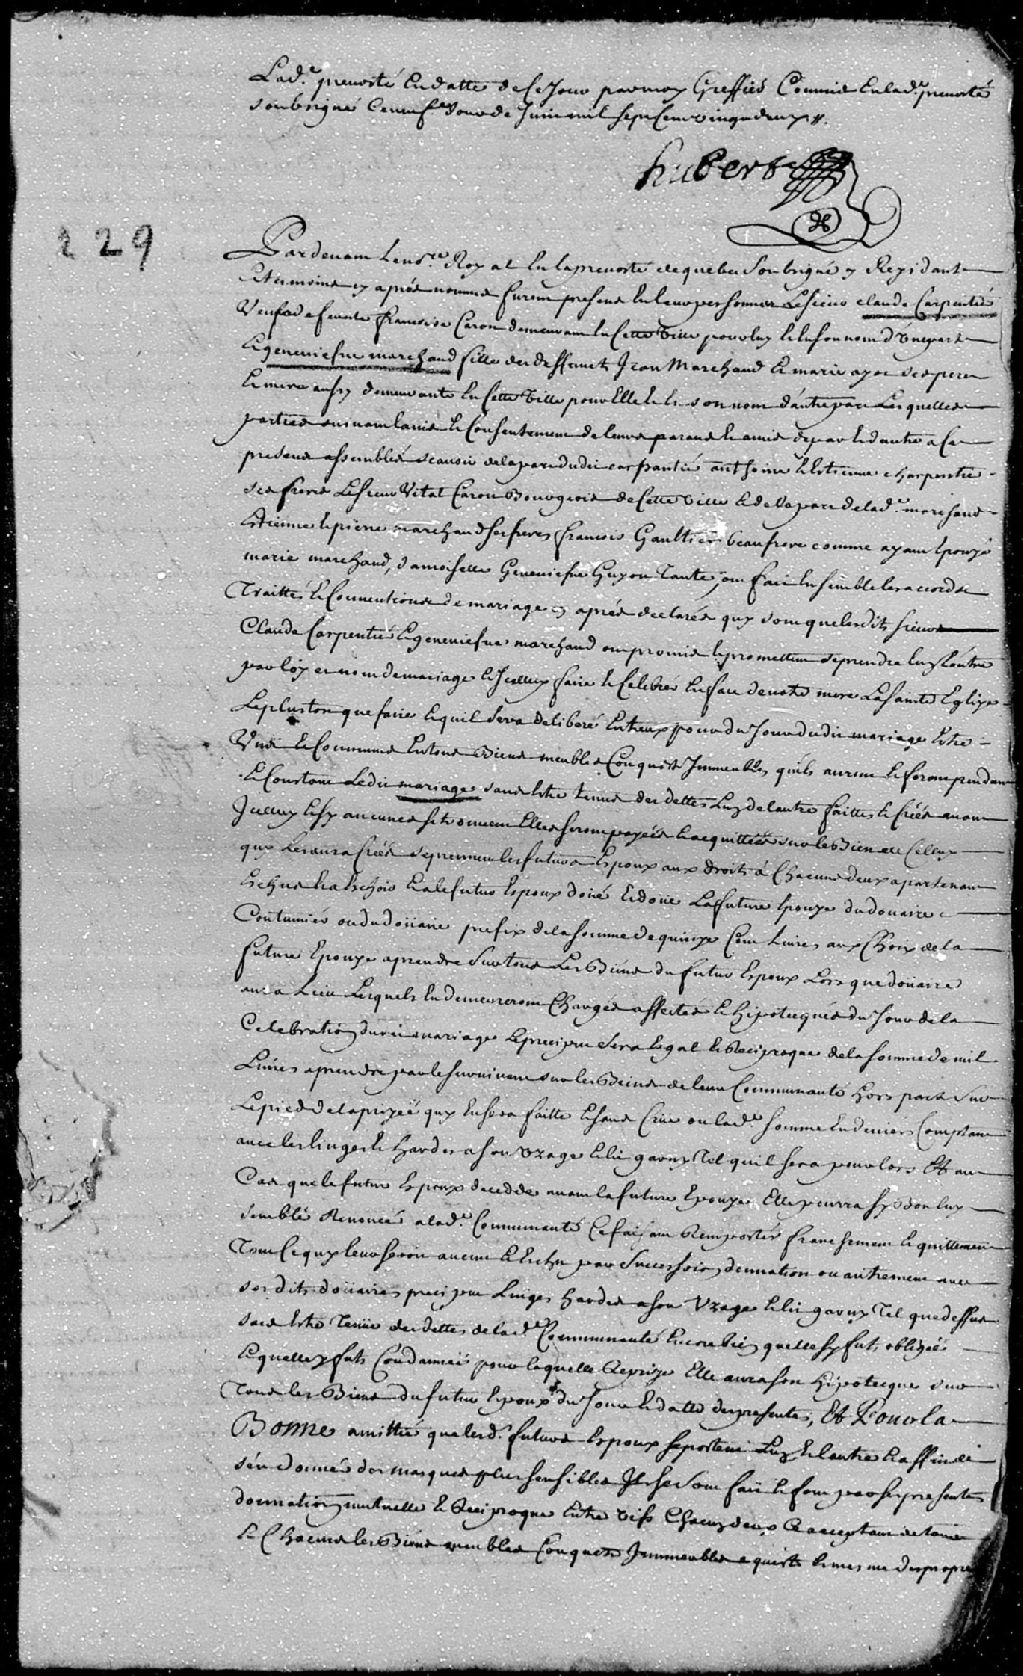 Lad.e prevosté En datte de ce Jour par moy Greffier Commis En lad.e prevosté
soubsigné Ce neuf.e Jour de Juin mil sept Cent vingt deux
hubert
229
Pardevant Le no.re Royal En la prevosté de quebec Soubsigné y Rezidant
Et temoins cy aprés nommés furent presens En leurs personnes Le sieur claude Carpentié
Veuf de feuente françoise Caron demeurant En Cette Ville pour luy Et En son nom d'Une part
Et geneviefve marchand fille des deffuncts Jean Marchand Et marie ayoc ses pere
Et mere aussy demeurante En Cette Ville pour Elle Et En son nom d'autre part Lesquelles
parties suivant lavis Et Consentement de leurs parans Et amis de part Et dautre a Ce
presens assemblés scavoir de la part dudit carpantié anthoine Et Estienne charpentié
ses freres Le sieur Vital Caron Bourgeois de Cette Ville Et de la part de lad.e marchand
Etienne Et pierre marchand ses freres françois Gaultier beaufrere comme ayant Epouzé
marie marchand, damoiselle Geneviefve Guyon Tante, ont fait Ensemble les acords
Traittés Et Conventions de mariage cy aprés declarés quy sont que lesdits sieurs
Claude Carpentié Et geneviefve marchand ont promis Et promettent se prendre Lun Lautre
par loy et nom de mariage Et Iceluy faire Et Celebrer En face de notre mere La Sainte Eglize
Le plus tost que faire Et quil Sera deliberé Entreux pour du Jour dudit mariage Estre
Unis Et Communs En tous Biens meubles Conquets Immeubles quils auront Et feront pendant
Et Constant Ledit mariage sans Estre tenus des dettes Lun de Lautre faittes Et Créés avant
Iceluy Et sy aucunes se trouvent Elles seront payées Et acquittées sur les Biens de Celluy
quy Les aura Créés se prennent les futurs Epoux aux droits á Chacun d'eux apartenant
Eschus Et a Eschoir Et a le futur Espoux doüé Et doüe La future Epouze du douaire
Coutumier ou du doüaire prefix de la somme de quinze Cent Livres aux Choix de la
future Epouze a prendre Sur tous Les Biens du futur Espoux Lors que doüaire
aura Lieu Lesquels En demeureront Chargés affectés Et hipotecqués du Jour de la
Celebration dudit mariage Le preciput Sera Egal Et Reciproque de la Somme de mil
Livres a prendre par le survivant sur les Biens de leur Communauté hors part Sur
Le pied de la prizeé quy En sera faitte Et sans Crüe ou lad.e Somme En deniers Comptant
avec les linges Et hardes a son Uzage Et lit garny Tel quil sera pour lors Et au
Cas que le futur Epoux decedde avant la future Epouze Elle pourra sy bon luy
semble Renoncer a lad.e Communauté Ce faisant Remporter franchement Et quittement
Tout Ce quy leur seroit avenu Et Eschu par Succession, donnation ou autrement avec
ses dits doüaires preciput Linges hardes a son Uzage Et lit garny Tel que dessus
sans Estre Tenüe des dettes de lad.e Communauté Encore bien quelle sy fut obligée
Et quelle y fut Condamneé pour laquelle Reprize Elle aura son hipotecque sur
Tous les Biens du futur Epoux du Jour Et datte des presentes, Et Pour la
Bonne amittié que lesd.s futurs Espoux se portent Lun Et lautre Et affin de
sén donner des marques plus sensibles Ils se sont fait Et font par ses presentes
donnation mutuelle Et Reciproque Entre Vifs Chacun deux Ce acceptant de tous
Et Chacuns les Biens meubles Conquets Immeubles acquests Et mesme des propres